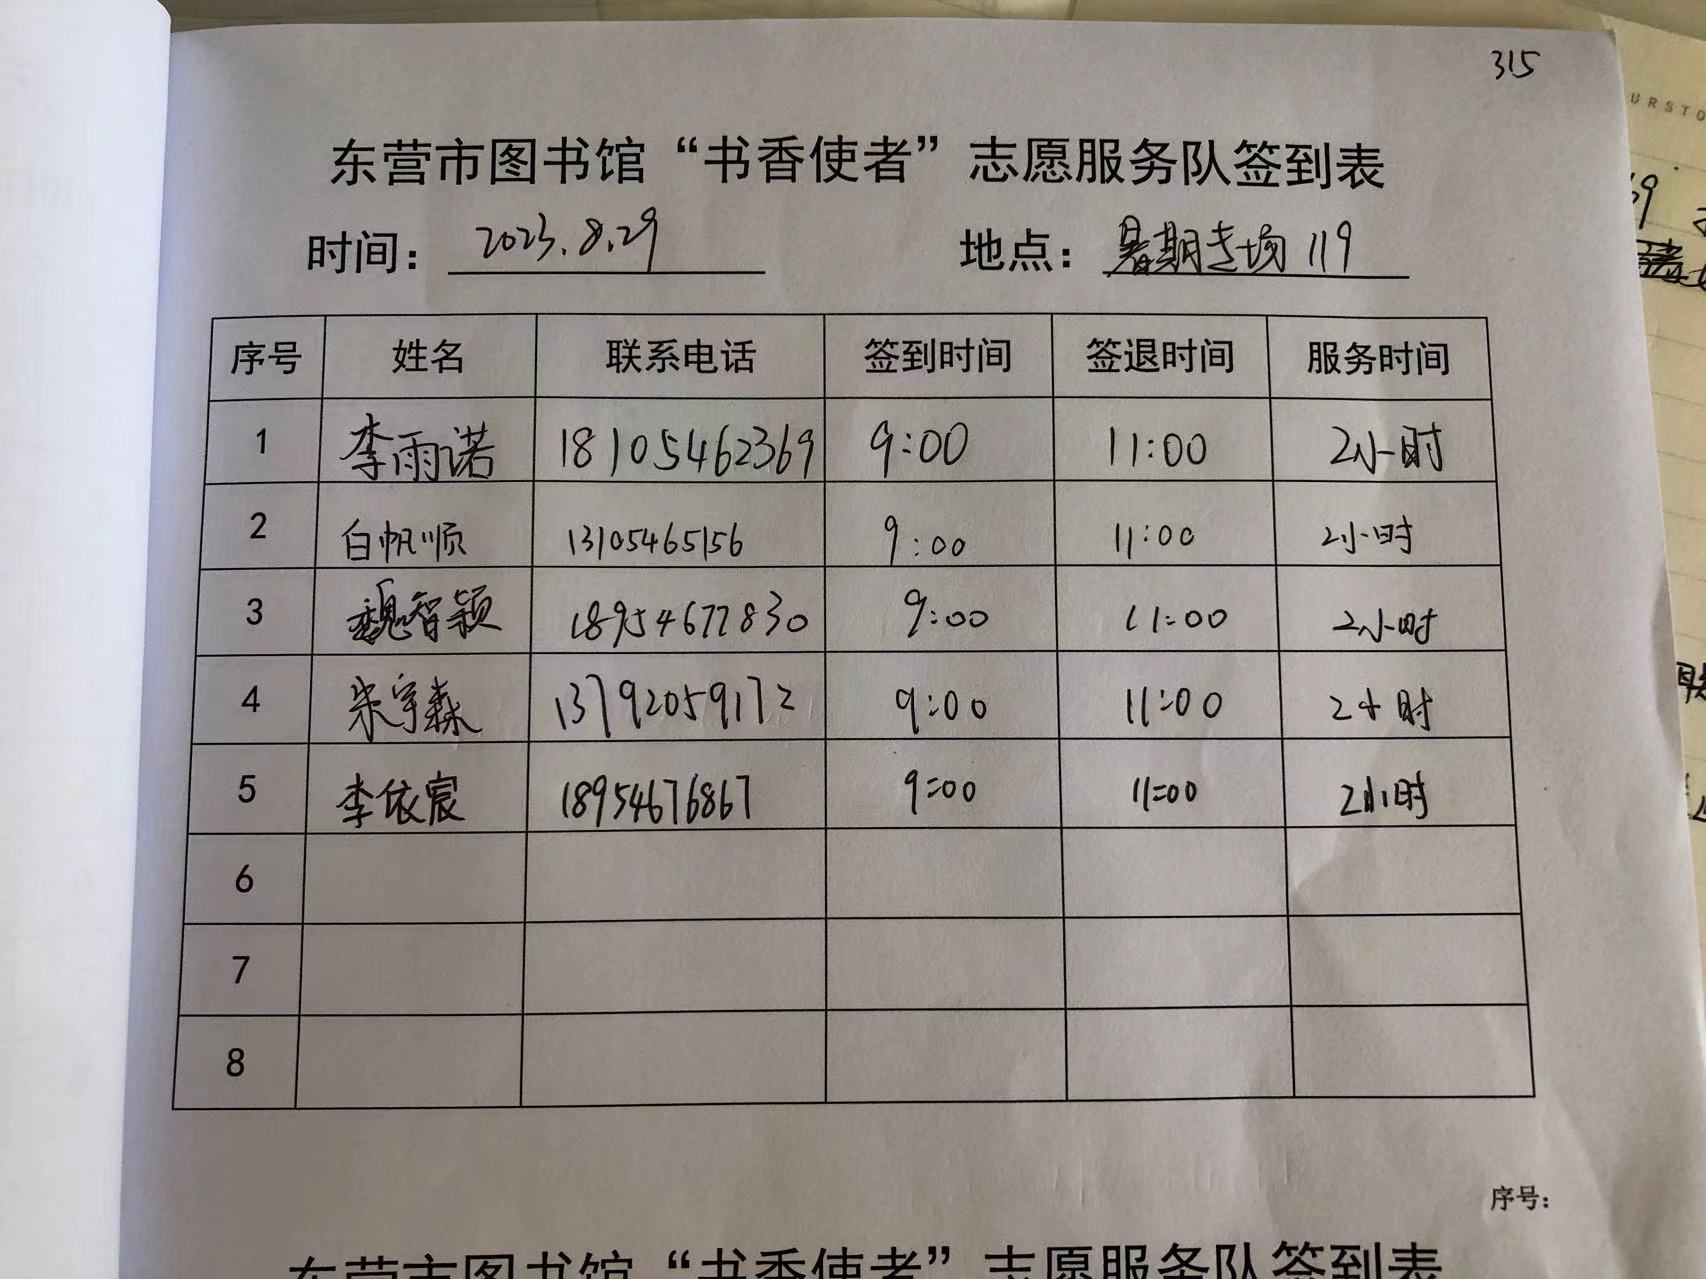 315
URSTO
东营市图书馆“书香使者”志愿服务队签到表
时间：2023.8.29 地点：暑期专场119
序号 姓名 联系电话 签到时间 签退时间 服务时间
1 李雨诺 18105462369 9:00 11:00 2小时
2 白帆顺 13105465156 9:00 11:00 2小时
3 魏智颖 18954677830 9:00 11:00 2小时
4 朱宇森 13792059172 9:00 11:00 2小时
5 李依宸 18954676867 9:00 11:00 2小时
6
7
8
序号：
东营市图书馆“书香使者”志愿服务队签到表